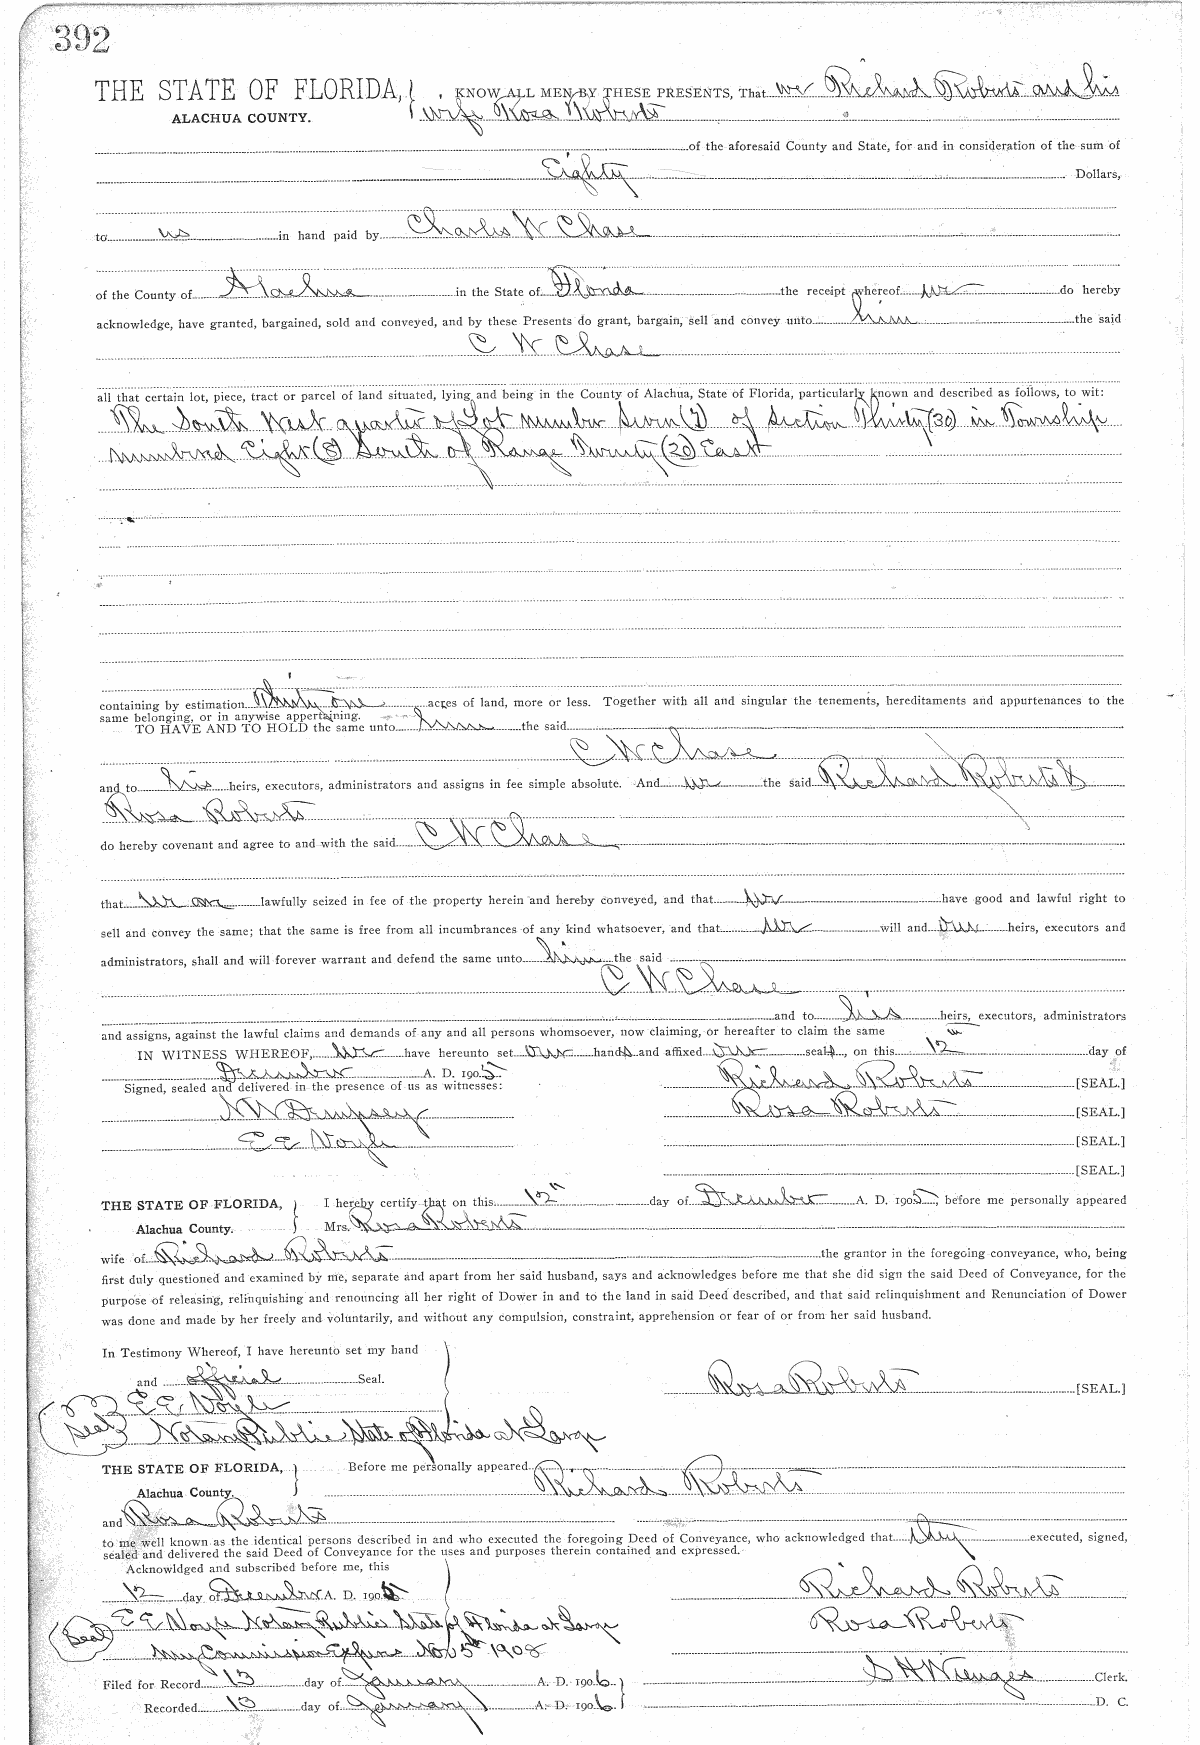 392
THE STATE OF FLORIDA, KNOW ALL MEN BY THESE PRESENTS, That we Richard Roberts and his
ALACHUA COUNTY. wife Rosa Roberts
of the aforesaid County and State, for and in consideration of the sum of
Eighty Dollars,
to us in hand paid by Charles W Chase
of the County of Alachua in the State of Florida the receipt whereof we do hereby
acknowledge, have granted, bargained, sold and conveyed, and by these Presents do grant, bargain, sell and convey unto him the said
C W Chase
all that certain lot, piece, tract or parcel of land situated, lying and being in the County of Alachua, State of Florida, particularly known and described as follows, to wit:
The South West quarter of Lot number Seven (7) of Section Thirty (30) in Township
numbered Eight (8) South of Range Twenty (20) East
containing by estimation Thirty one acres of land, more or less. Together with all and singular the tenements, hereditaments and appurtenances to the
same belonging, or in anywise appertaining.
TO HAVE AND TO HOLD the same unto him the said
C W Chase
and to his heirs, executors, administrators and assigns in fee simple absolute. And we the said Richard Roberts &
Rosa Roberts
do hereby covenant and agree to and with the said C W Chase
that we are lawfully seized in fee of the property herein and hereby conveyed, and that we have good and lawful right to
sell and convey the same; that the same is free from all incumbrances of any kind whatsoever, and that we will and our heirs, executors and
administrators, shall and will forever warrant and defend the same unto him the said
C W Chase
and to his heirs, executors, administrators
and assigns, against the lawful claims and demands of any and all persons whomsoever, now claiming, or hereafter to claim the same
IN WITNESS WHEREOF, we have hereunto set our hands and affixed our seals, on this 12th day of
December A. D. 1905
Signed, sealed and delivered in the presence of us as witnesses: Richard Roberts [SEAL.]
N W Dempsey Rosa Roberts [SEAL.]
E E Voyle [SEAL.]
[SEAL.]
THE STATE OF FLORIDA, I hereby certify that on this 12th day of December A. D. 1905, before me personally appeared
Alachua County. Mrs. Rosa Roberts
wife of Richard Roberts the grantor in the foregoing conveyance, who, being
first duly questioned and examined by me, separate and apart from her said husband, says and acknowledges before me that she did sign the said Deed of Conveyance, for the
purpose of releasing, relinquishing and renouncing all her right of Dower in and to the land in said Deed described, and that said relinquishment and Renunciation of Dower
was done and made by her freely and voluntarily, and without any compulsion, constraint, apprehension or fear of or from her said husband.
In Testimony Whereof, I have hereunto set my hand
and official Seal. Rosa Roberts [SEAL.]
E E Voyle
Seal Notary Public State of Florida at Large
THE STATE OF FLORIDA, Before me personally appeared
Alachua County. Richard Roberts
and Rosa Roberts
to me well known as the identical persons described in and who executed the foregoing Deed of Conveyance, who acknowledged that they executed, signed,
sealed and delivered the said Deed of Conveyance for the uses and purposes therein contained and expressed.
Acknowldged and subscribed before me, this
12 day of December A. D. 1905 Richard Roberts
Seal E E Voyle Notary Public State of Florida at Large Rosa Roberts
My Commission Expires Nov 5th 1908
Filed for Record 13 day of January A. D. 1906 S H Wienges Clerk.
Recorded 13 day of January A. D. 1906 D. C.